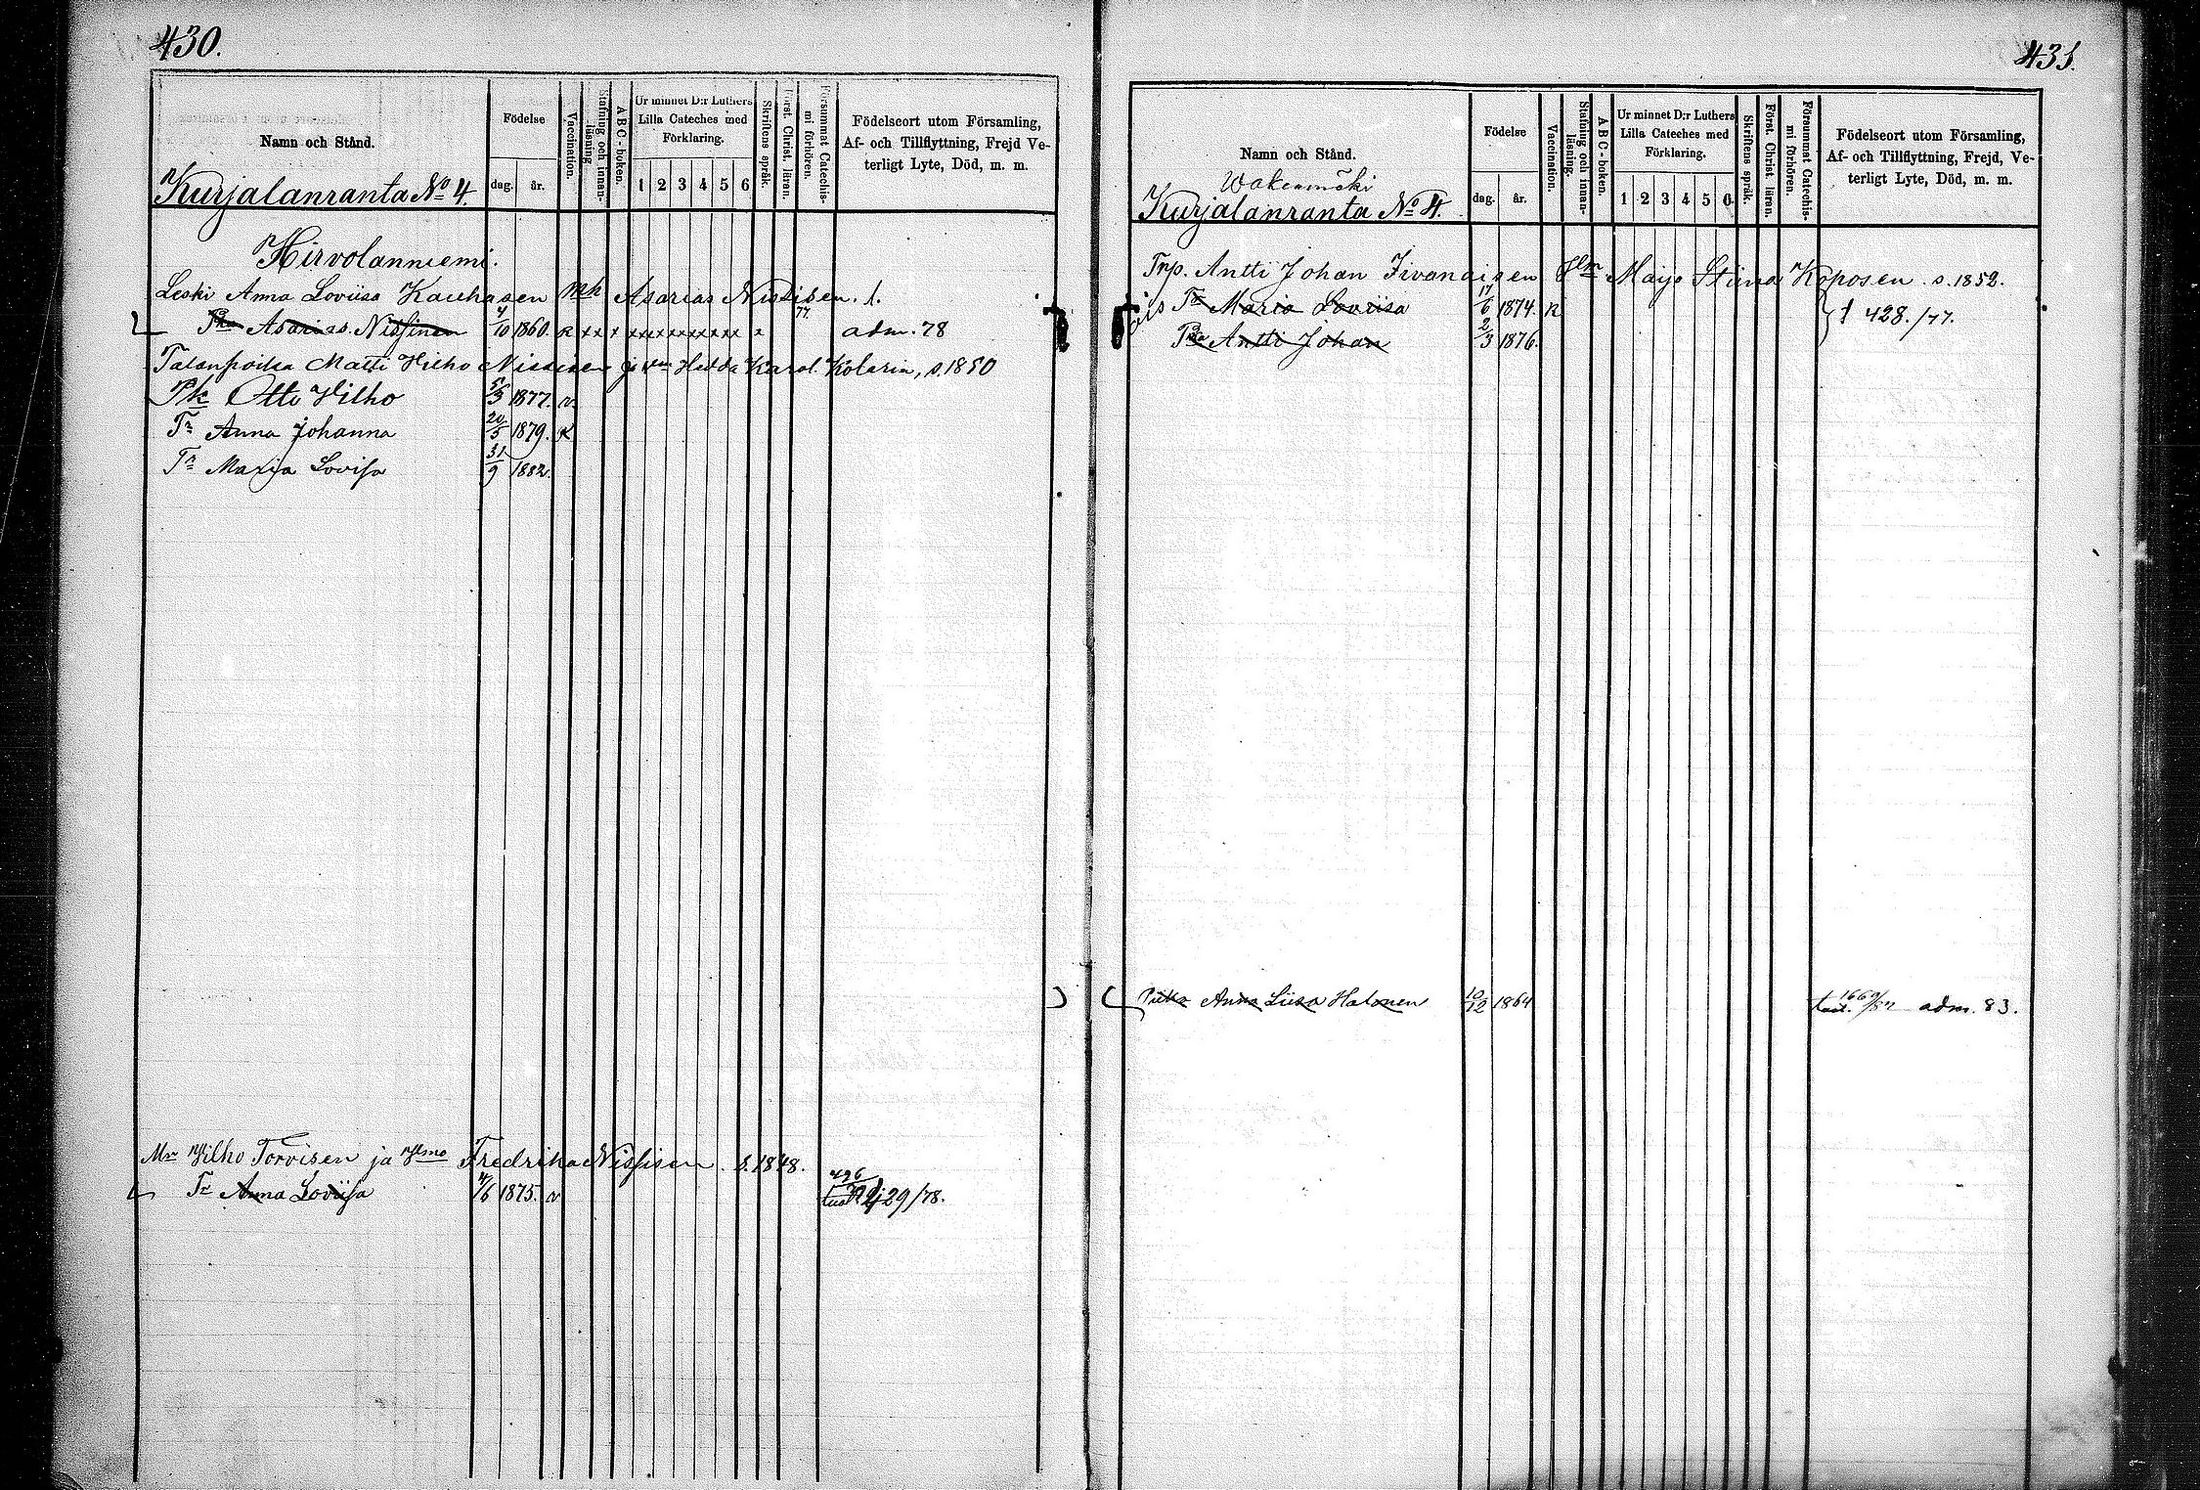 430.
Namn och Stånd.
Födelse
dag.
år.
Vaccination.
Stafning och innan-
läsning.
ABC-boken.
Ur minnet D:r Luthers
Lilla Cateches med
Förklaring.
1 2 3 4 5 6
Skriftens språk.
Först. Christ. läran.
Försummat Catechis-
mi förhören.
Födelseort utom Församling,
Af- och Tillflyttning, Frejd Ve-
terligt Lyte, Död, m. m.
Kurjalanranta No 4.
Hirvolanniemi.
Leski Anna Loviisa Kauhasen mk Asarias Nissisen. 1.
77.
Pka Asarias Nissinen 4/10 1860. R xx x xxxxxxxxxx x adm. 78
Talonpoika Matti Vilho Nissisen ja Vm Hedda Karol. Kolarin, s. 1850
Pk Otto Vilho 5/3 1877. v.
Tr Anna Johanna 20/5 1879. R
Tr Maria Lovisa 31/9 1882.
Mn Vilho Torvisen ja Vmo Fredrika Nissisen s. 1848.
Tr Anna Loviisa 4/6 1875. v 496 29/78.
431.
Namn och Stånd.
Födelse
dag.
år.
Vaccination.
Stafning och innan-
läsning.
ABC-boken.
Ur minnet D:r Luthers
Lilla Cateches med
Förklaring.
1 2 3 4 5 6
Skriftens språk.
Först. Christ. läran.
Försummat Catechis-
mi förhören.
Födelseort utom Församling,
Af- och Tillflyttning, Frejd, Ve-
terligt Lyte, Död, m. m.
Wakermäki
Kurjalanranta No 4.
Trp. Antti Johan Iivanaisen Maija Stiina Koposen. s. 1852.
ois Tr Maria Loviisa 17/6 1874. R
Pka Antti Johan 2/3 1876. } § 428./77.
Piika Anna Liisa Hatonen 10/12 1864 tod. 1660/82 adm. 83.